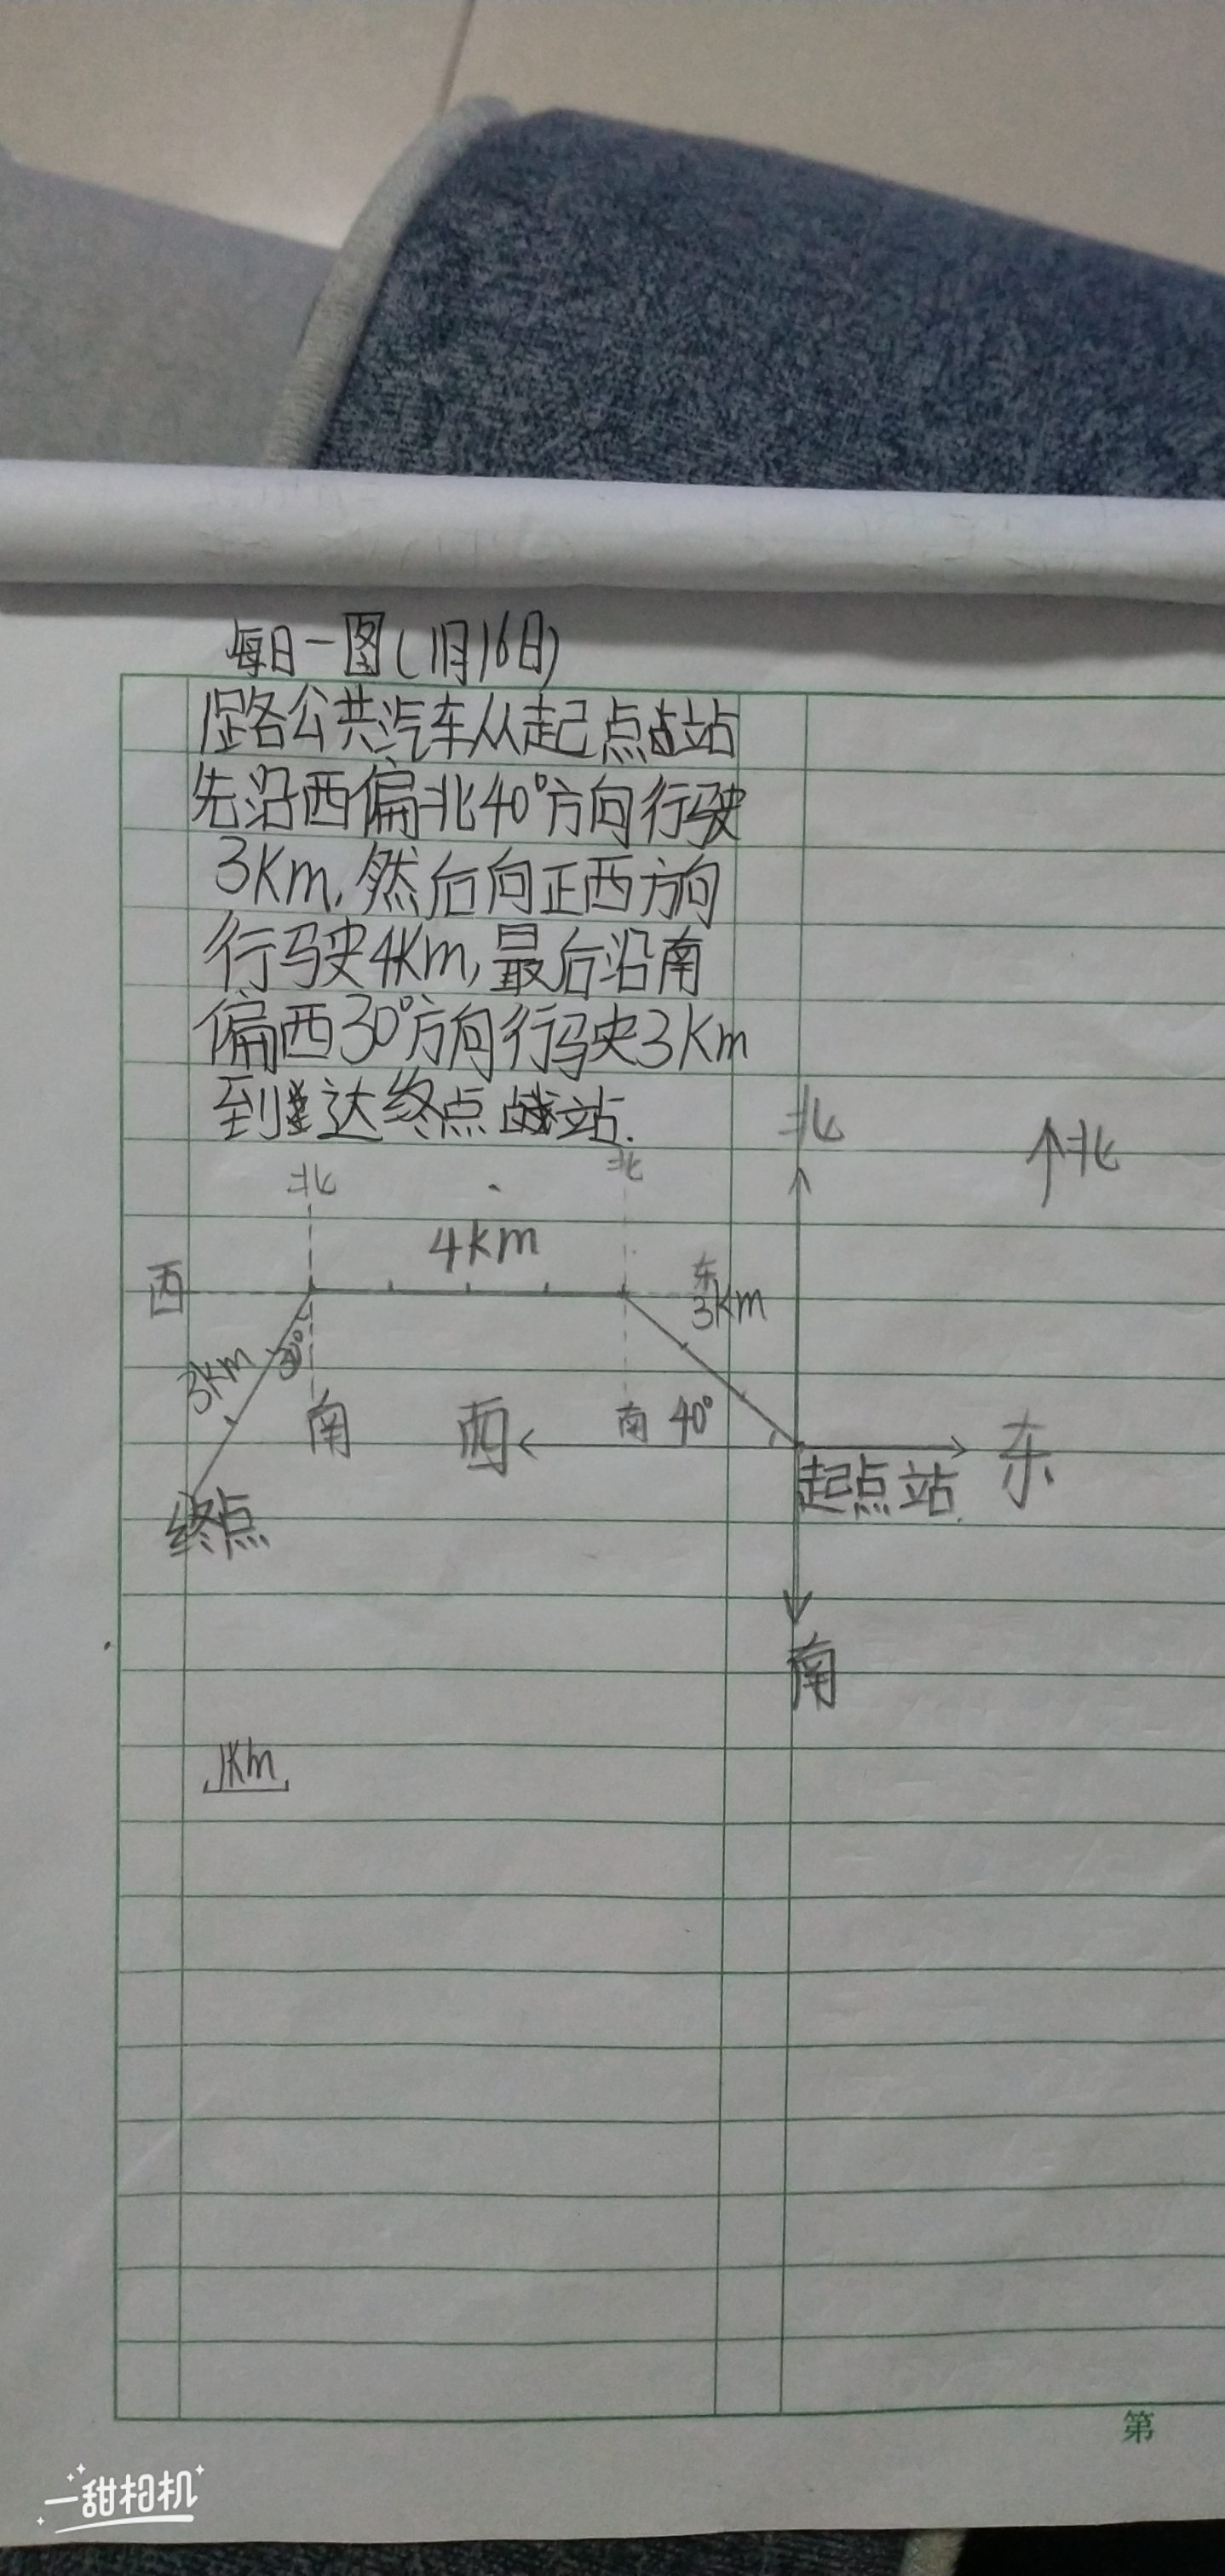 每日一图(1月16日)
路公共汽车从起点站
先沿西偏北40°方向行驶
3Km,然后向正西方向
行驶4Km,最后沿南
偏西30°方向行驶3Km
到达终点站.
北
北
北
↑北
4km
西
东
3km
3km
30°
南
西
南
40°
起点站
东
终点
南
1Km
第
一甜相机